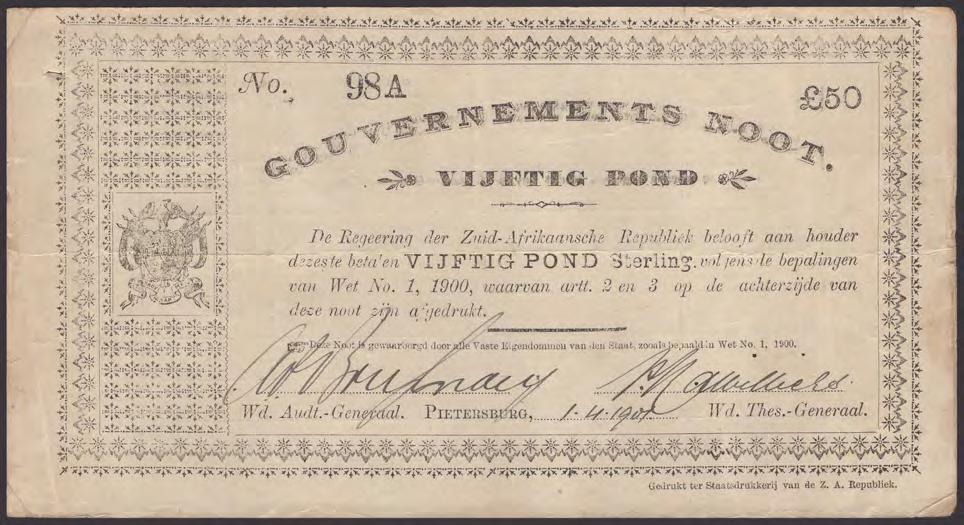 No. 98A £50
GOUVERNEMENTS NOOT.
VIJFTIG POND
De Regeering der Zuid-Afrikaansche Republiek belooft aan houder
dezes te beta'en VIJFTIG POND Sterling, volgens de bepalingen
van Wet No. 1, 1900, waarvan artt. 2 en 3 op de achterzijde van
deze noot zijn afgedrukt.
Deze Noot is gewaarborgd door alle Vaste Eigendommen van den Staat, zooals bepaald in Wet No. 1, 1900.
Wd. Audt.-Generaal. PIETERSBURG, 1.4.1901 Wd. Thes.-Generaal.
Gedrukt ter Staatsdrukkerij van de Z. A. Republiek.